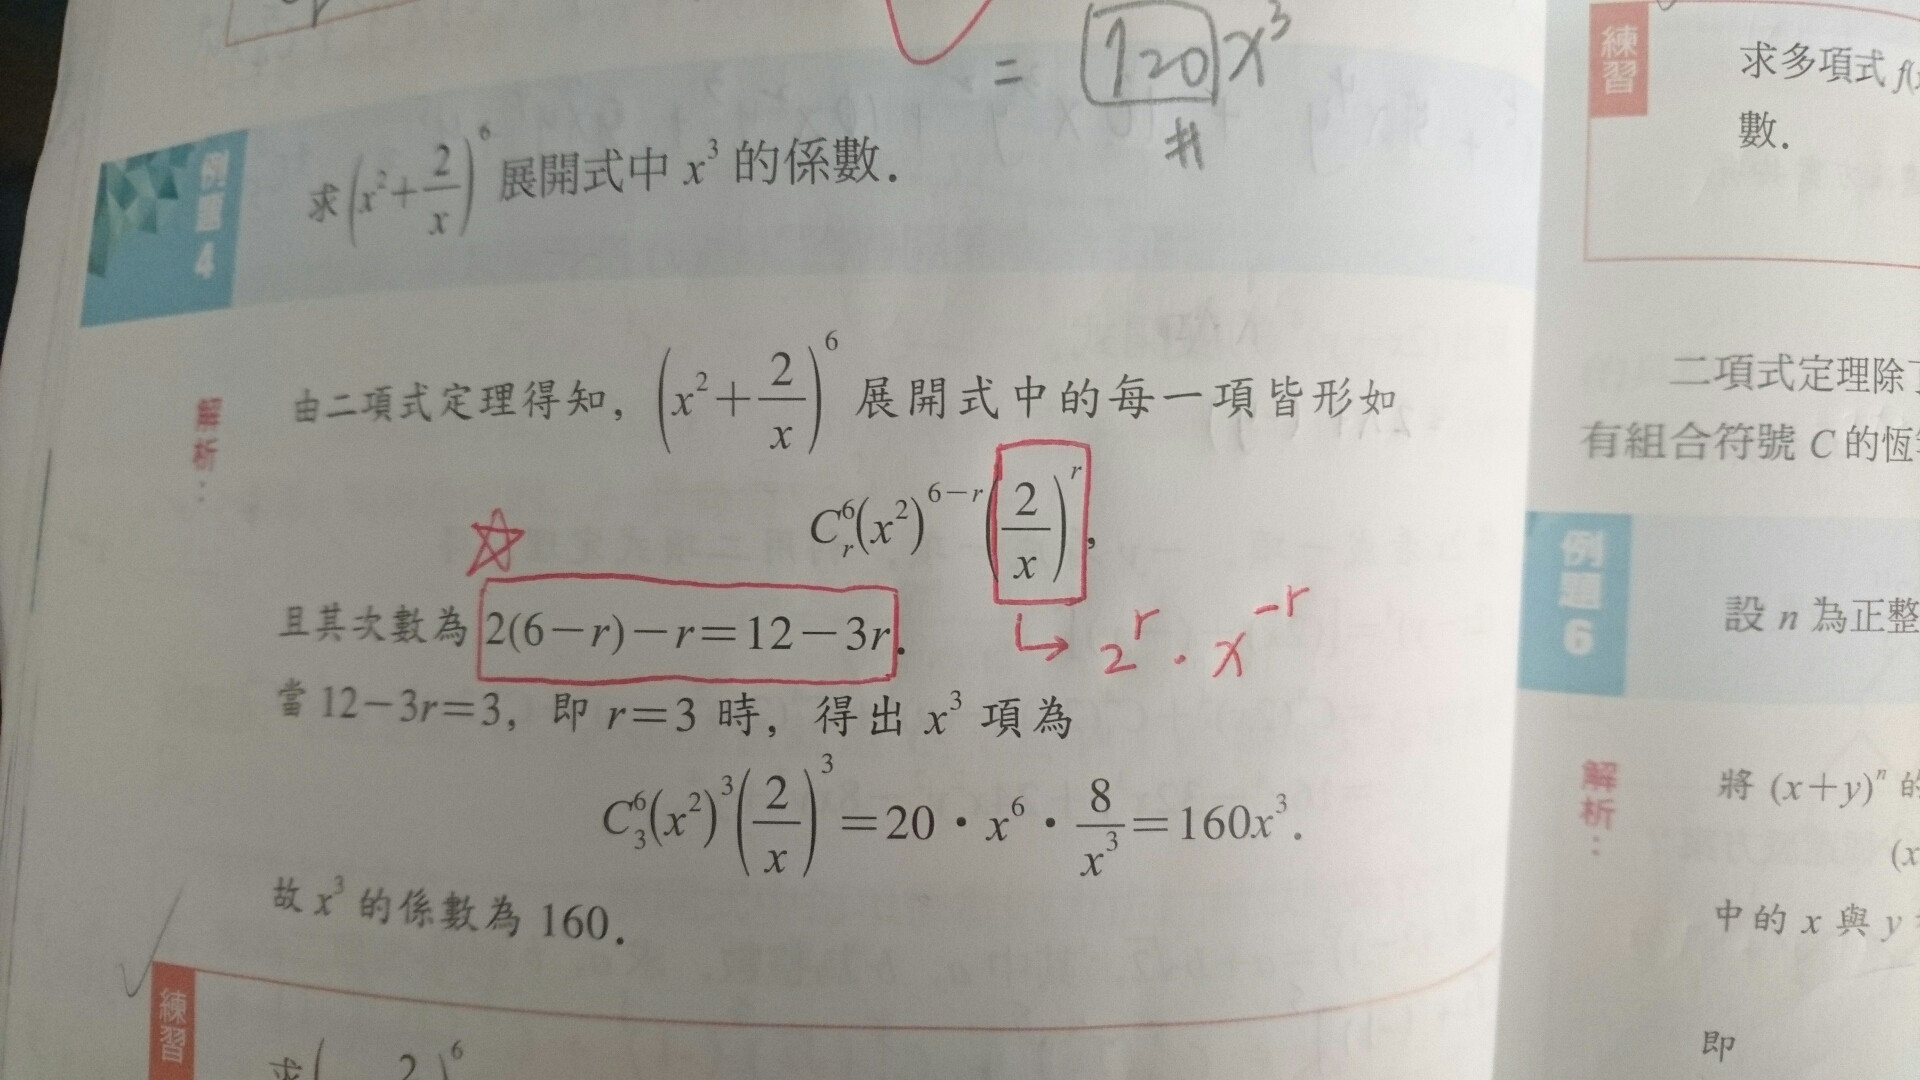 = 120 x³
#
例題4
求(x²+2/x)⁶展開式中 x³ 的係數.
解析：
由二項式定理得知，(x²+2/x)⁶ 展開式中的每一項皆形如
C⁶ᵣ(x²)⁶⁻ʳ(2/x)ʳ,
且其次數為 2(6−r)−r=12−3r.
↳ 2ʳ · x⁻ʳ
當 12−3r=3，即 r=3 時，得出 x³ 項為
C⁶₃(x²)³(2/x)³=20・x⁶・8/x³=160x³.
故 x³ 的係數為 160.
練習
練習
求多項式
數.
二項式定理除
有組合符號 C 的恆
例題6
設 n 為正整
解析：
將 (x+y)ⁿ 的
(x
中的 x 與 y
即